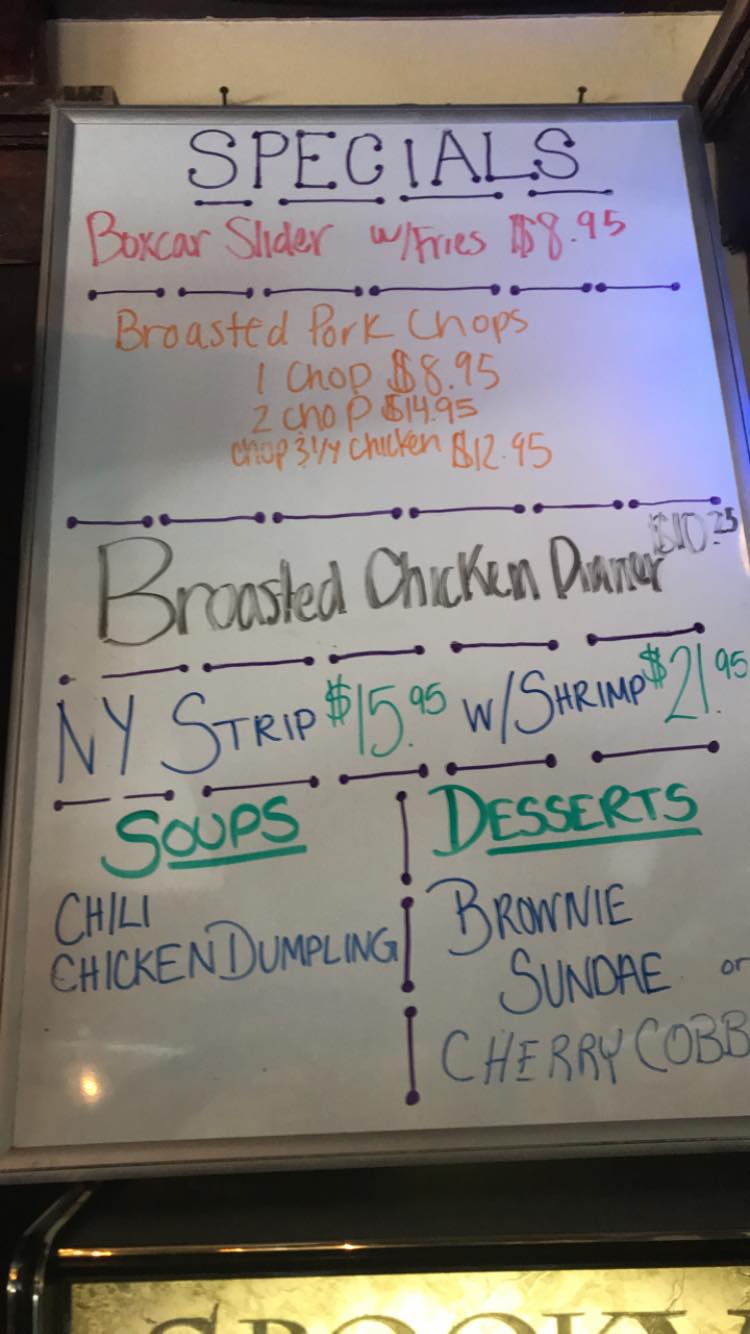 SPECIALS
Boxcar Slider w/Fries $8.95
Broasted Pork Chops
1 Chop $8.95
2 chop $14.95
chop & 1/4 chicken $12.95
Broasted Chicken Dinner $10.25
NY STRIP $15.95 W/SHRIMP $21.95
SOUPS
CHILI
CHICKEN DUMPLING
DESSERTS
BROWNIE
SUNDAE or
CHERRY COBB